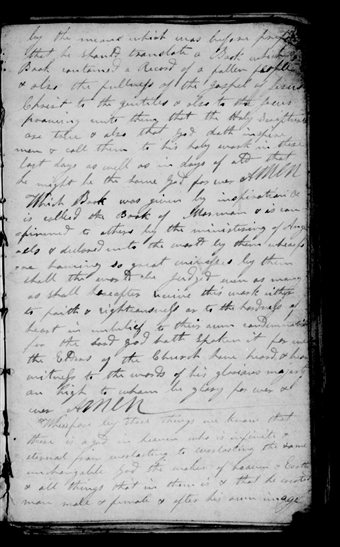 by the means which was before
that he should translate a Book which
Book contained a Record of a fallen people
& also the fullness of the Gospel of Jesus
Christ to the gentiles & also to the Jews
prooving unto them that the Holy Scriptures
are true & also that God doth inspire
men & call them to his holy work in these
last days as well as in days of old that
he might be the same God for ever AMEN
Which Book was given by inspiration &
is called the Book of Mormon & is con
firmed to others by the ministering of Ang
els & declared unto the world by them wherefo
re haveing so great witnesses by them
shall the world be Judged even as many
as shall hereafter receive this work either
to faith & righteousness or to the hardness of
heart in unbelief to their own condemnation
for the Lord God hath spoken it for we
the Elders of the Church have heard & bear
witness to the words of his glorious majesty
on high to whom be glory for ever &
ever AMEN
Wherefore by these things we know that
there is a god in heaven who is infinite &
eternal from everlasting to everlasting the same
unchangable God the maker of heaven & earth
& all things that in them is & that he created
man male & female & after his own image